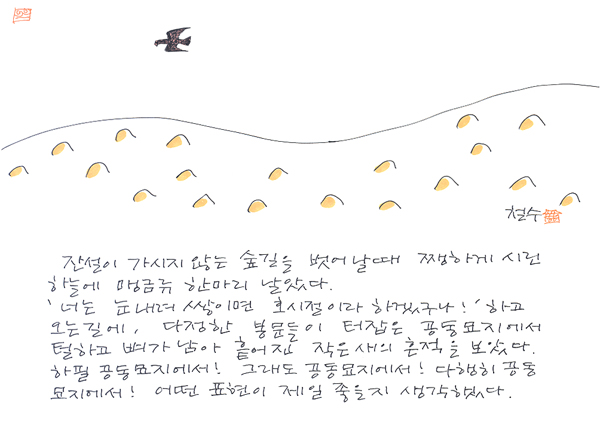 철수
잔설이 가시지 않는 숲길을 벗어날때 쨍하게 시린
하늘에 맹금류 한마리 날았다.
'너는 눈내려 쌓이면 호시절이라 하겠구나!' 하고
오는길에, 다정한 봉분들이 터잡은 공동묘지에서
털하고 뼈가 남아 흩어진 작은새의 흔적을 보았다.
하필 공동묘지에서! 그래도 공동묘지에서! 다행히 공동
묘지에서! 어떤 표현이 제일 좋을지 생각했다.